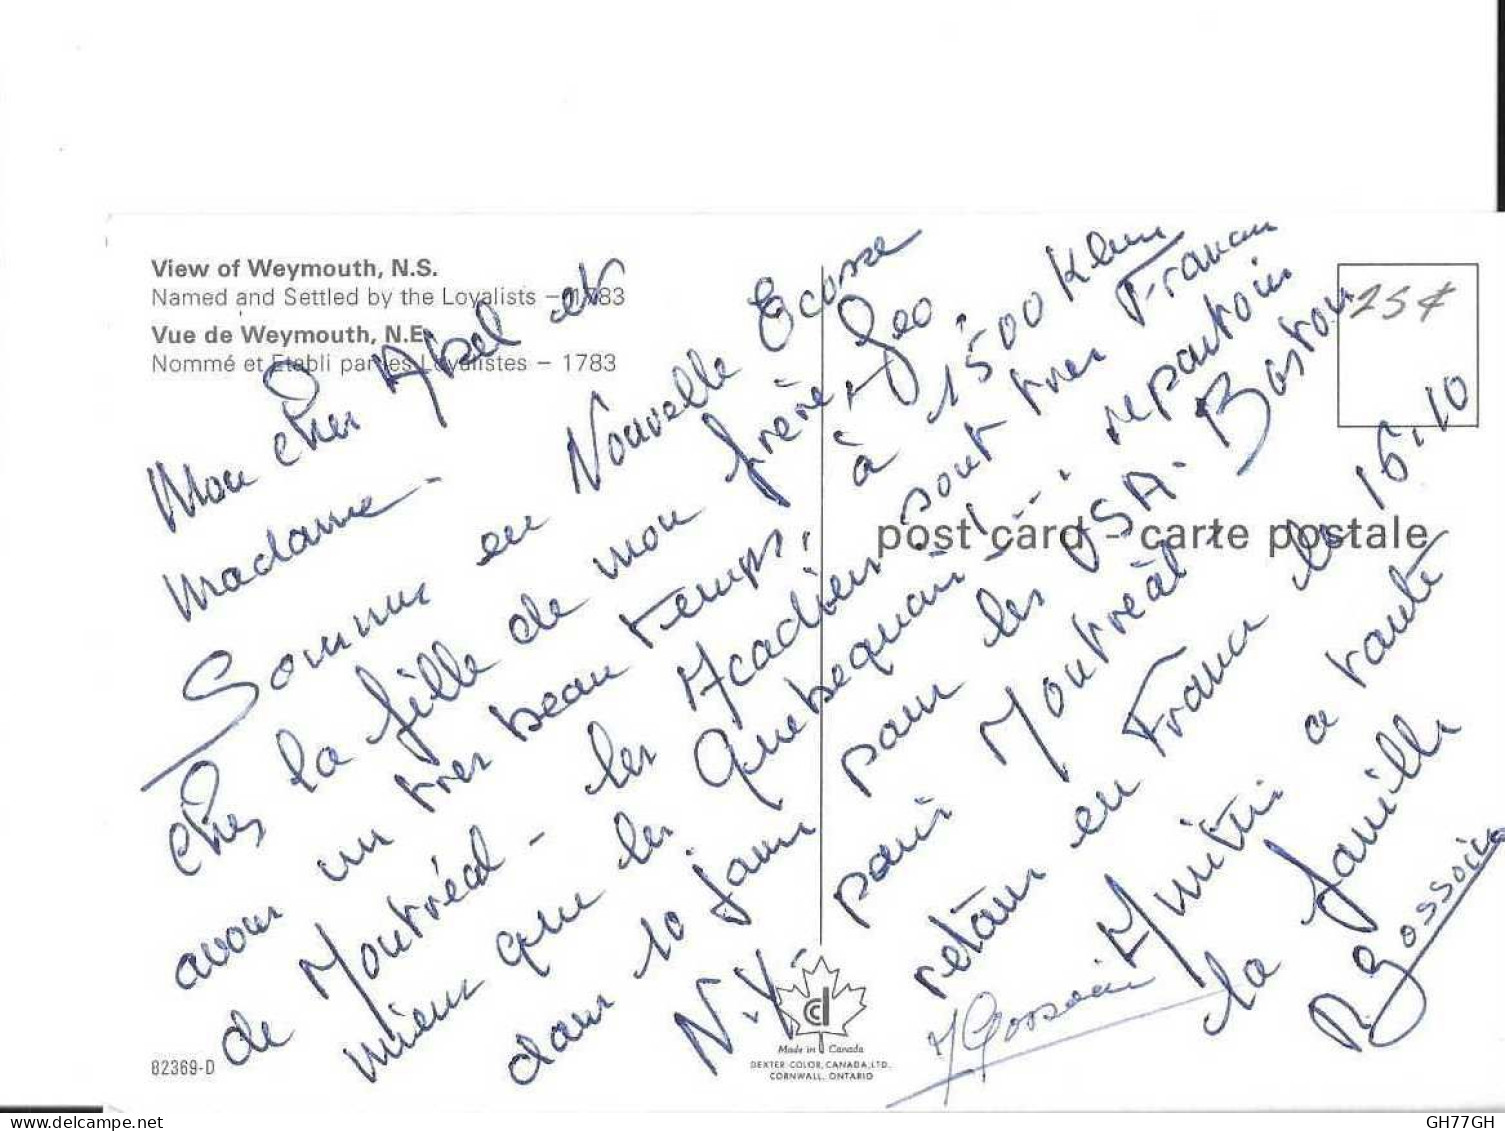 View of Weymouth, N.S.
Named and Settled by the Loyalists – 1783
Vue de Weymouth, N.E.
Nommé et Etabli par les Loyalistes – 1783
25¢
Mon cher Abel et
Madame -
Sommes en Nouvelle Ecosse
chez la fille de mon frère, Geo.
avons un tres beau temps, à 1500 Klm
de Montréal - les Acadiens sont tres Francais
mieux que les Quebequais !... repartons
dans 10 jours pour les USA. Boston
N.Y. puis Montreàl,
retour en France le 16.10
Amitiés a toute
la famille
R Gossoin
post card - carte postale
Made in Canada
DEXTER COLOR, CANADA, LTD.
CORNWALL, ONTARIO
82369-D
GH77GH